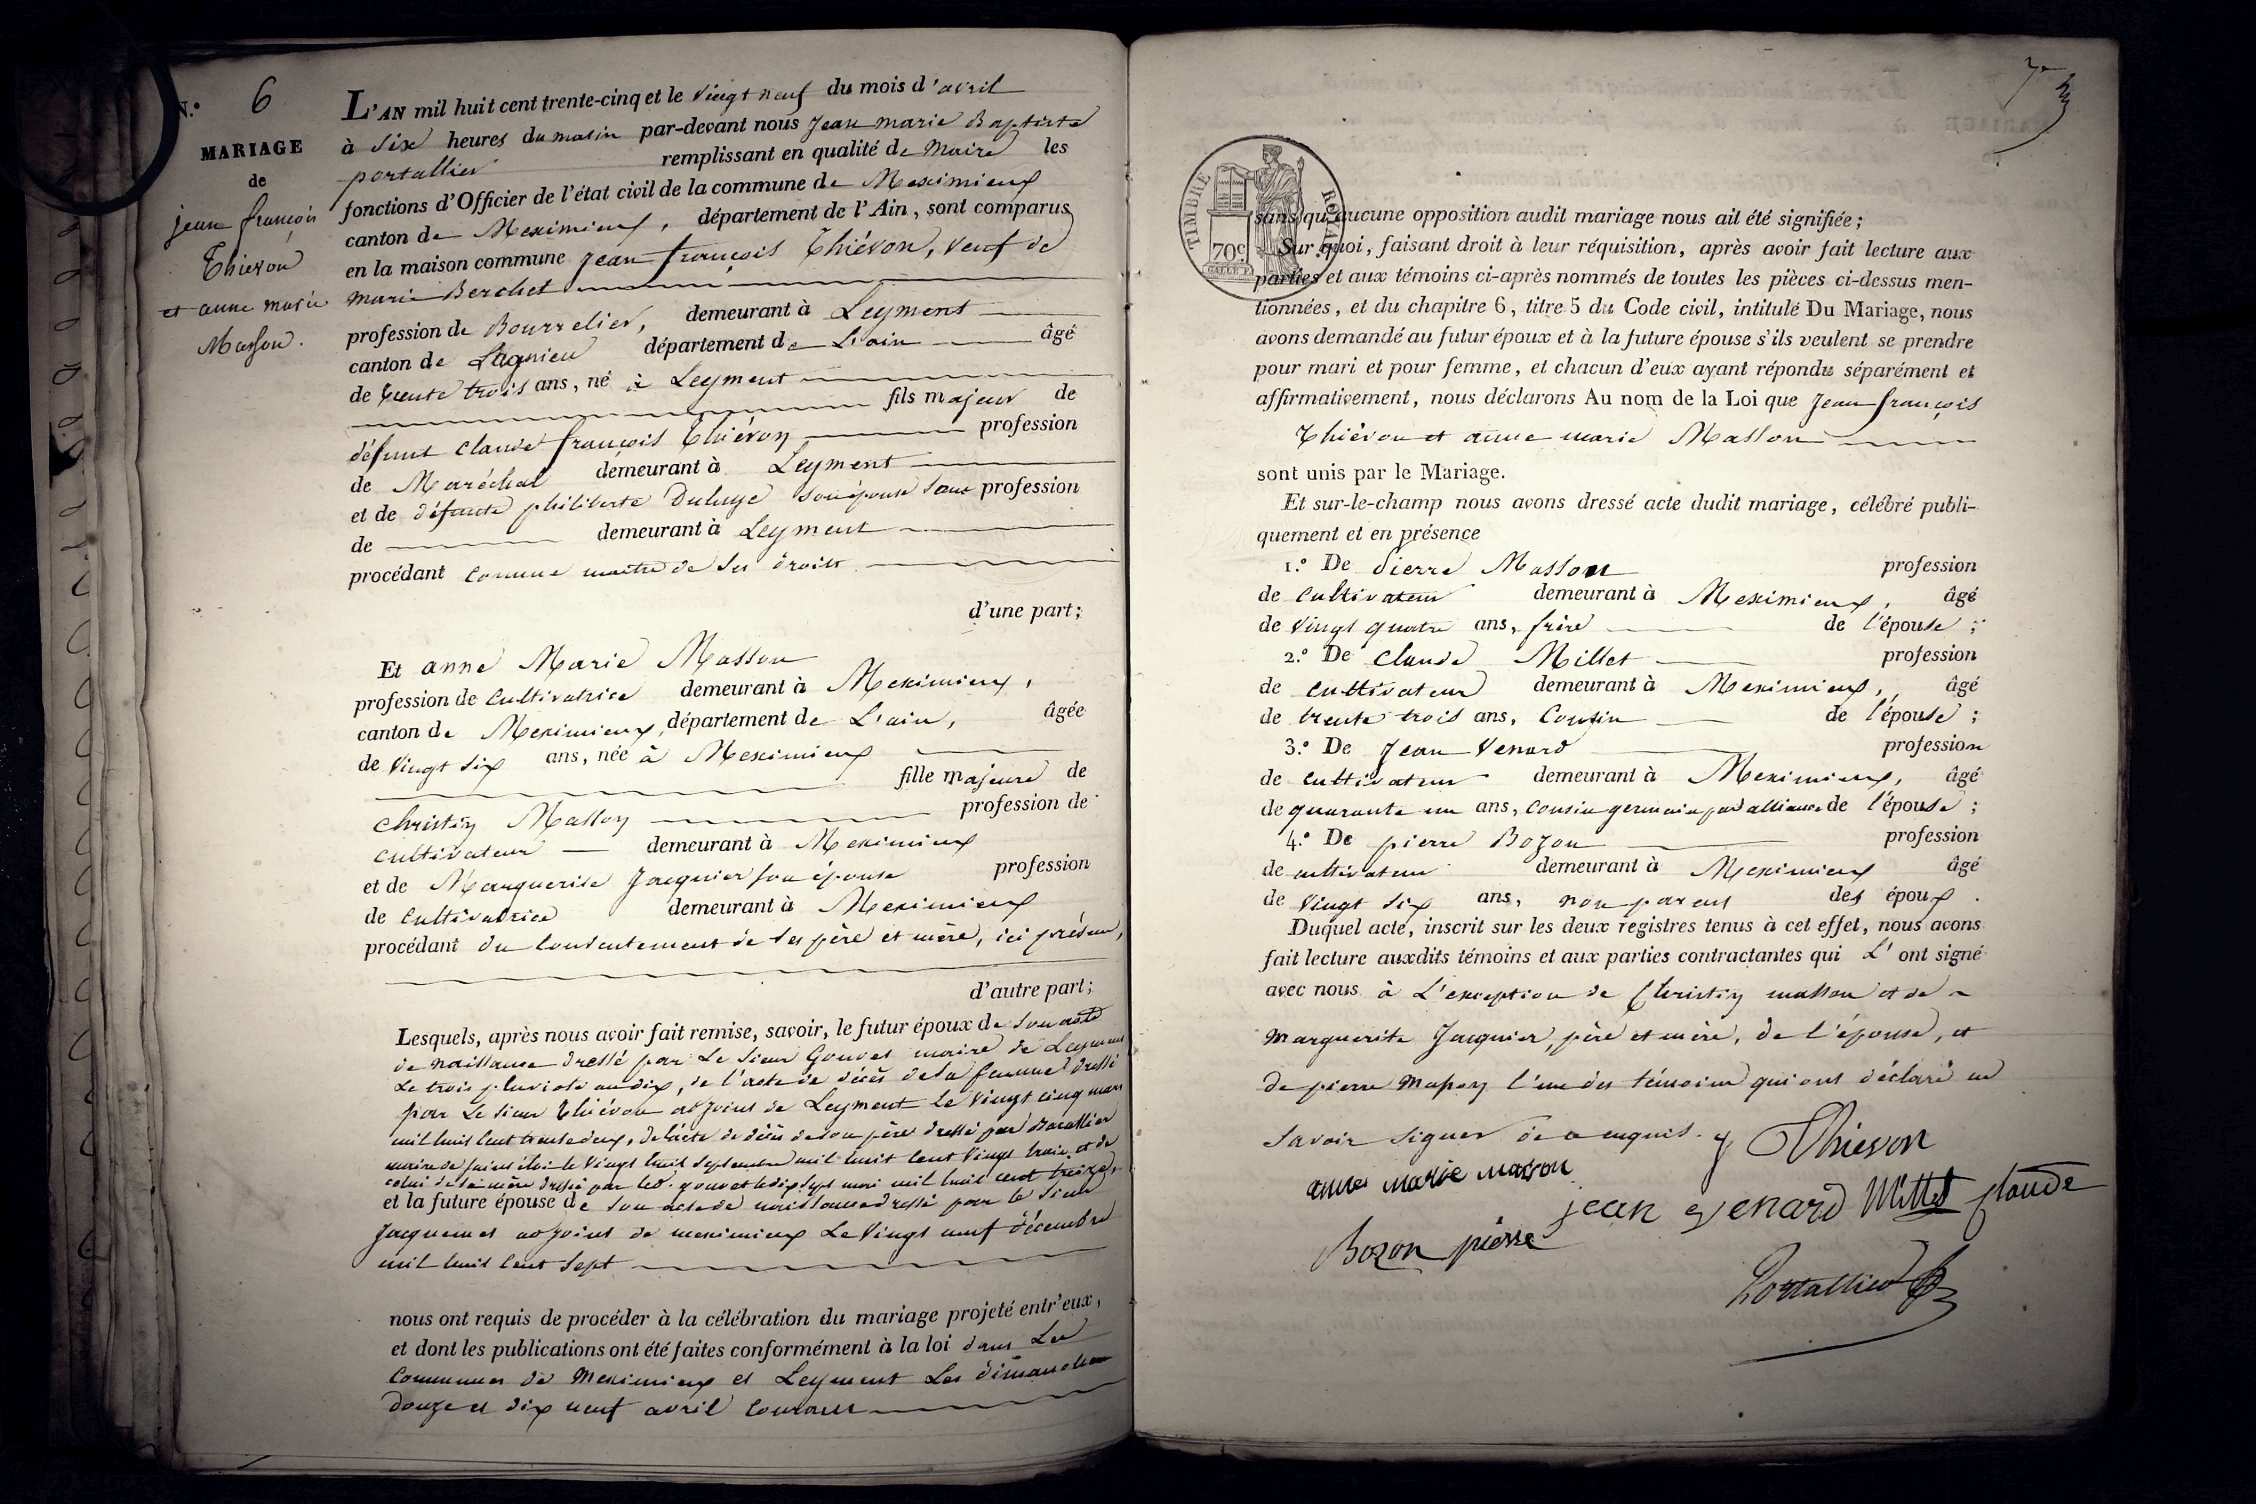 N.° 6
MARIAGE
de
jean françois
Thiévon
et anne marie
Masson.
L'AN mil huit cent trente-cinq et le vingt neuf du mois d'avril
à six heures du matin par-devant nous jean marie Baptiste
portallier remplissant en qualité de Maire les
fonctions d'Officier de l'état civil de la commune de Meximieux
canton de Meximieux, département de l'Ain, sont comparus
en la maison commune jean françois Thiévon, veuf de
marie Berchet
profession de Bourrelier, demeurant à Leyment
canton de Lagnieu département de L'ain âgé
de trente trois ans, né à Leyment
fils majeur de
défunt claude françois Thiévon profession
de Maréchal demeurant à Leyment
et de défunte philiberte Duluye son épouse sans profession
de demeurant à Leyment
procédant comme maitre de ses droits
d'une part;
Et anne Marie Masson
profession de cultivatrice demeurant à Meximieux,
canton de Meximieux, département de L'ain, âgée
de vingt six ans, née à Meximieux
fille majeure de
christin Masson profession de
cultivateur demeurant à Meximieux
et de Marguerite Jacquier son épouse profession
de cultivatrice demeurant à Meximieux
procédant du consentement de ses père et mère, ici présens,
d'autre part;
Lesquels, après nous avoir fait remise, savoir, le futur époux de son acte
de naissance dressé par Le sieur Gouvet maire de Leyment
Le trois pluviose an dix, de l'acte de décès de sa femme dressé
par Le sieur Thiévon adjoint de Leyment Le vingt cinq mars
mil huit cent trente deux, de l'acte de décès de son père dressé par Baratlier
maire de saint éloi le vingt huit septembre mil huit cent vingt trois, et de
celui de sa mère dressé par led. gouvet le dix sept mai mil huit cent treize,
et la future épouse de son acte de naissance dressé par le sieur
Jacquemet adjoint de meximieux Le vingt neuf décembre
mil huit cent sept
nous ont requis de procéder à la célébration du mariage projeté entr'eux,
et dont les publications ont été faites conformément à la loi dans Les
communes de Meximieux et Leyment Les dimanches
douze et dix neuf avril courant
TIMBRE ROYAL
70c.
sans qu'aucune opposition audit mariage nous ait été signifiée;
Sur quoi, faisant droit à leur réquisition, après avoir fait lecture aux
parties et aux témoins ci-après nommés de toutes les pièces ci-dessus men-
tionnées, et du chapitre 6, titre 5 du Code civil, intitulé Du Mariage, nous
avons demandé au futur époux et à la future épouse s'ils veulent se prendre
pour mari et pour femme, et chacun d'eux ayant répondu séparément et
affirmativement, nous déclarons Au nom de la Loi que jean françois
Thiévon et anne marie Masson
sont unis par le Mariage.
Et sur-le-champ nous avons dressé acte dudit mariage, célébré publi-
quement et en présence
1.° De Pierre Masson profession
de cultivateur demeurant à Meximieux, âgé
de vingt quatre ans, frère de l'épouse;
2.° De Claude Millet profession
de cultivateur demeurant à Meximieux, âgé
de trente trois ans, Cousin de l'épouse;
3.° De Jean Venard profession
de cultivateur demeurant à Meximieux, âgé
de quarante un ans, cousin germain par alliance de l'épouse;
4.° De pierre Bozon profession
de cultivateur demeurant à Meximieux âgé
de vingt six ans, non parent des époux.
Duquel acte, inscrit sur les deux registres tenus à cet effet, nous avons
fait lecture auxdits témoins et aux parties contractantes qui L' ont signé
avec nous à L'exception de Christin masson et de
Marguerite Jacquier, père et mère, de l'épouse, et
de pierre masson l'un des témoins qui ont déclaré ne
savoir signer de ce enquis. Thievon
anne marie masson
jean venard Millet claude
Bozon pierre
Portallier